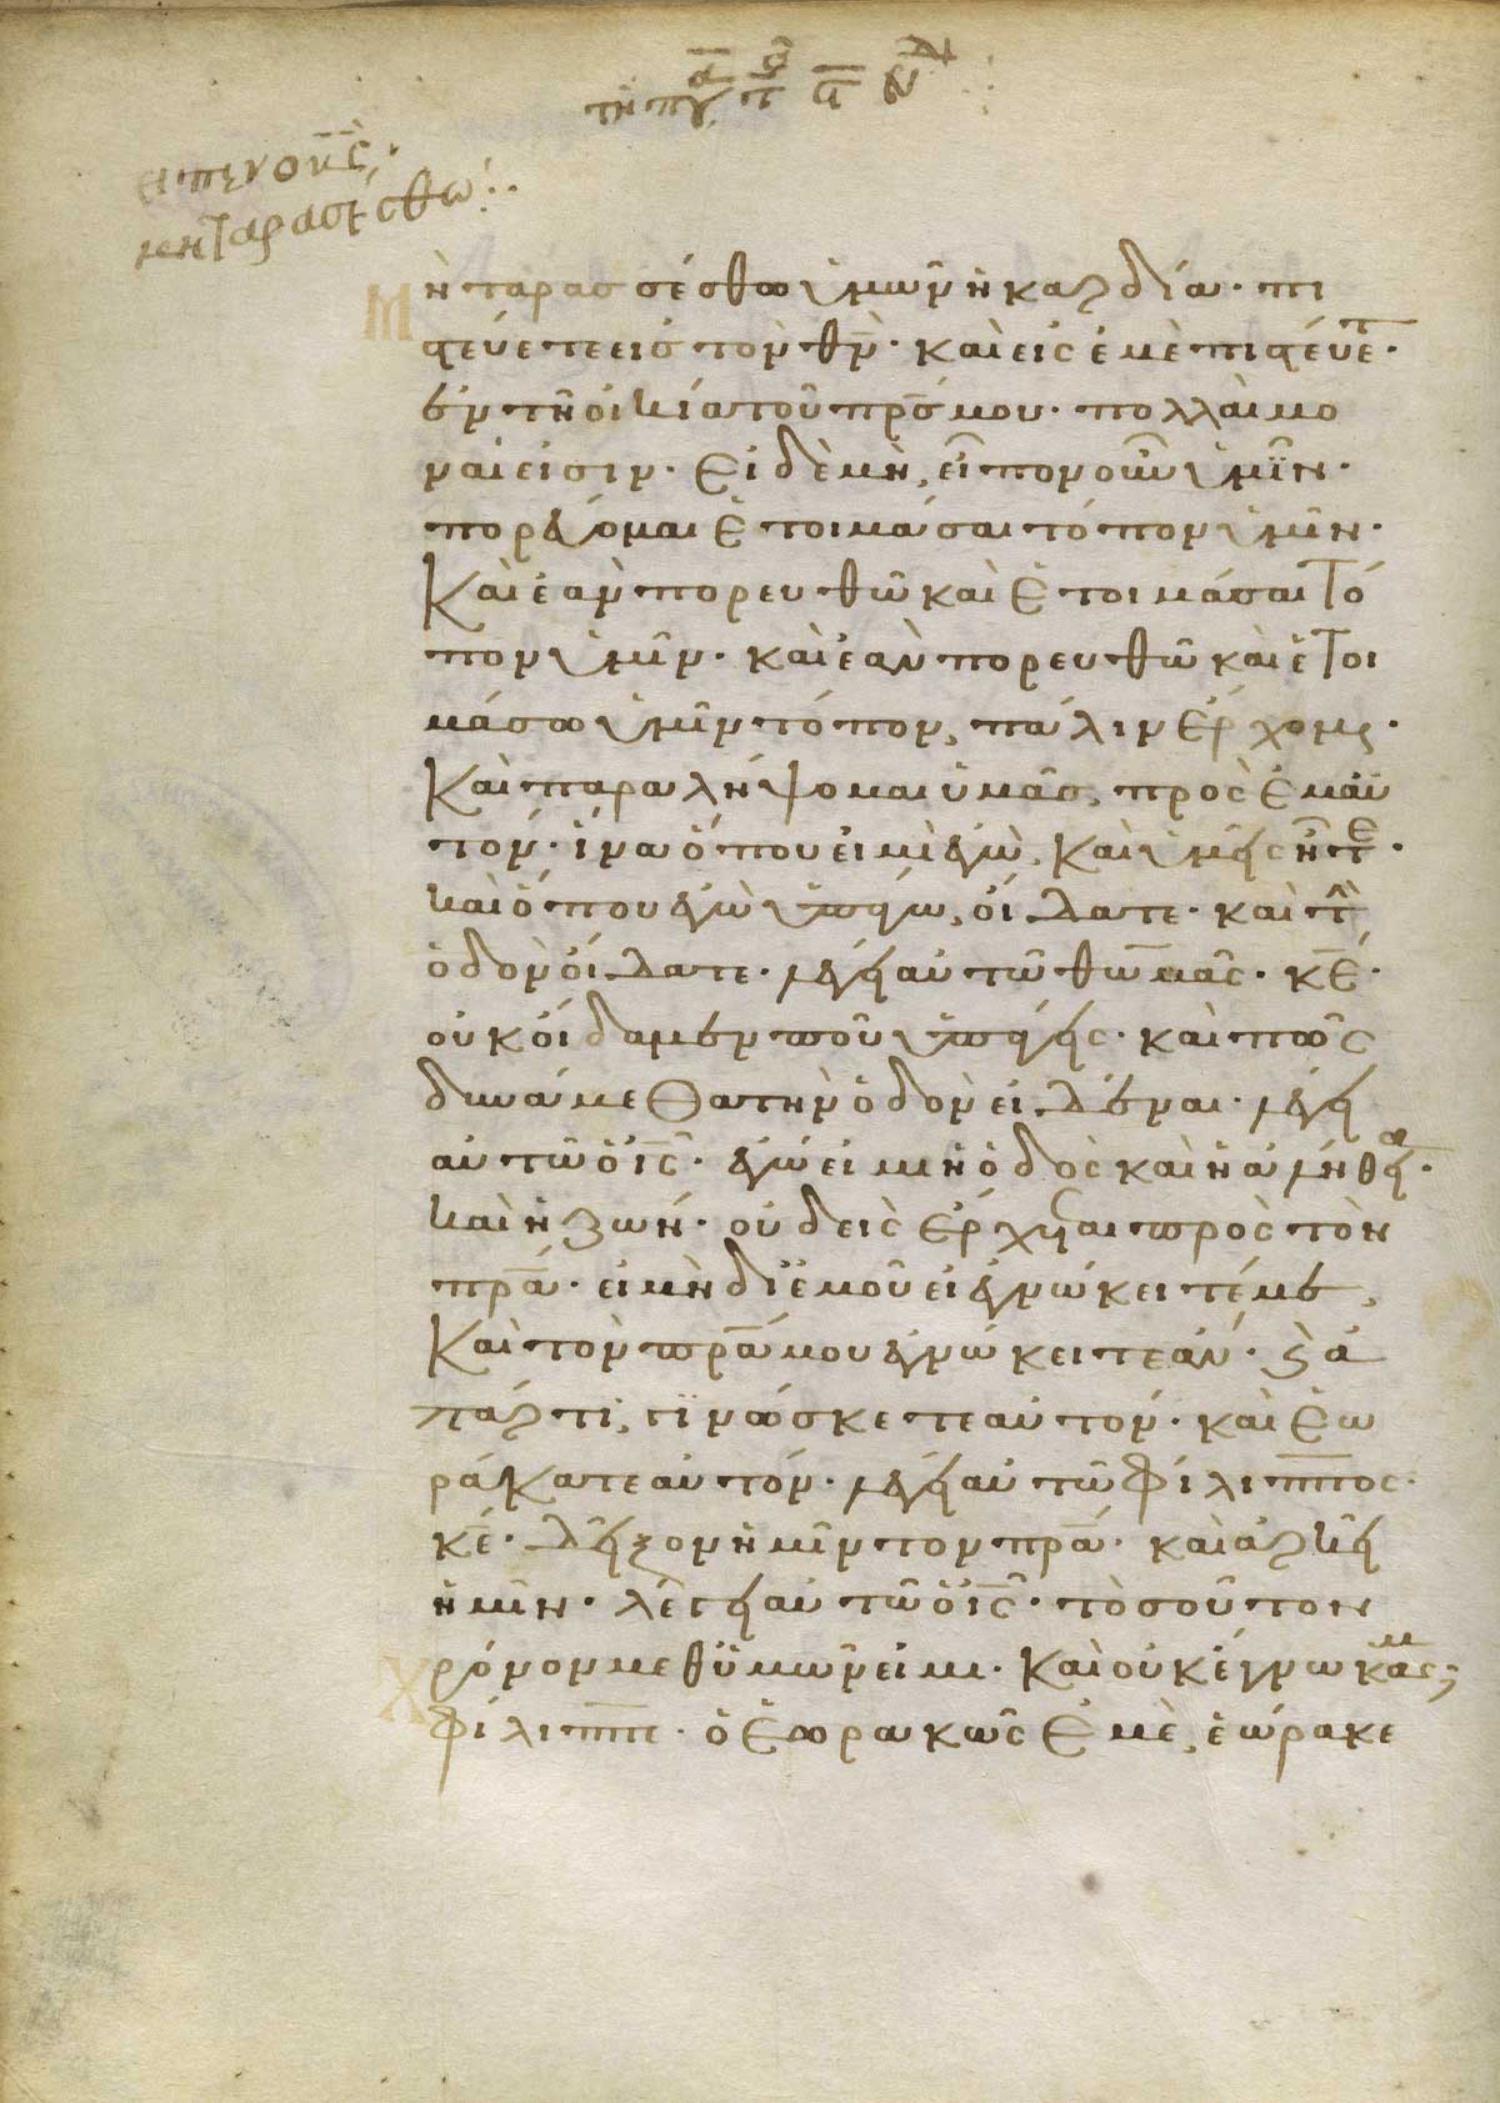 τη πγ
εἶπεν ὁ κ̅ς̅·
μη ταρασεσθω:
Μὴ ταρασσέσθω ὑμῶν ἡ καρδία· πι
στεύετε εἰς τὸν θ̅ν̅· καὶ εἰς ἐμὲ πιστεύετ̅ε·
ἐν τῆ οἰκία τοῦ πρ̅σ μου· πολλαὶ μο
ναί εἰσιν· εἰ δὲ μὴ, εἶπον οὖν ὑμῖν·
πορεύομαι ἑτοιμάσαι τόπον ὑμῖν·
Καὶ ἐὰν πορευθῶ καὶ ἑτοιμάσαι τό
πον ὑμῖν· καὶ ἐὰν πορευθῶ καὶ ἑτοι
μάσω ὑμῖν τόπον, πάλιν ἔρχομαι·
Καὶ παραλήψομαι ὑμᾶσ, πρὸς ἐμαυ
τόν· ἵνα ὅπου εἰμὶ ἐγὼ, καὶ ὑμεῖς ἦτε·
καὶ ὅπου ἐγὼ ὑπάγω, οἴδατε· καὶ τὴν
ὁδὸν οἴδατε· λέγει αὐτῶ θωμᾶς· κ̅ε̅·
οὐκ οἴδαμεν ποῦ ὑπάγεις· καὶ πῶς
δυνάμεθα τὴν ὁδὸν εἰδέναι· λέγει
αὐτῶ ὁ ι̅ς̅· ἐγώ εἰμι ἡ ὁδὸς καὶ ἡ ἀλήθεια·
καὶ ἡ ζωή· οὐδεὶς ἔρχεται πρὸς τὸν
πρ̅α· εἰ μὴ δι ἐμοῦ εἰ ἐγνώκειτέ με,
Καὶ τὸν πρ̅α μου ἐγνώκειτε ἄν· καὶ ἀ
παρτι, γινώσκετε αὐτόν· καὶ ἑω
ράκατε αὐτόν· λέγει αὐτῶ φίλιππος·
κ̅ε· δεῖξον ἡμῖν τὸν πρ̅α· καὶ ἀρκεῖ
ἡμῖν· λέγει αὐτῶ ὁ ι̅ς̅· τὸσοῦτον
Χρόνον μεθ ὑμῶν εἰμι· καὶ οὐκ ἔγνωκάς με;
φίλιππε· ὁ ἑωρακὼς ἐμὲ, ἑώρακε